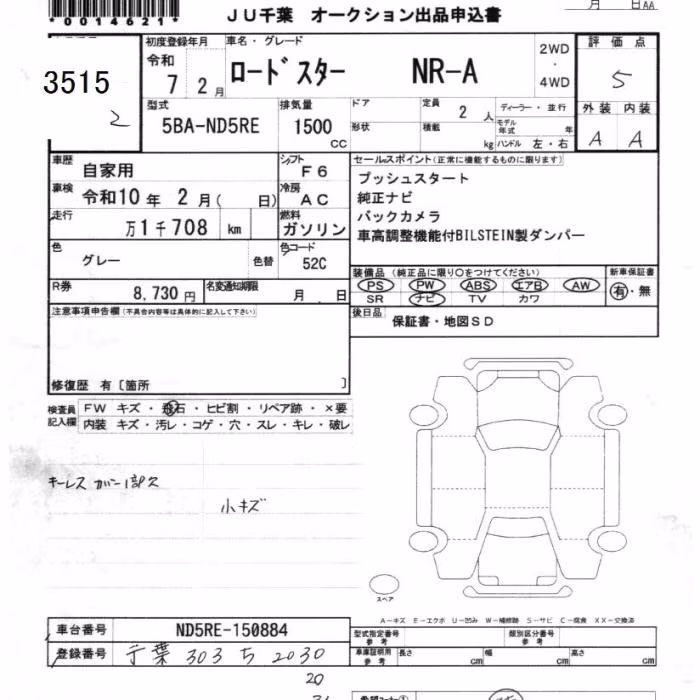 *0014621*
JU千葉 オークション出品申込書
月 日AA
3515
2
初度登録年月
令和
7 2月
車名・グレード
ロードスター NR-A
2WD
・
4WD
評価点
5
型式
5BA-ND5RE
排気量
1500
CC
ドア
形状
定員
2人
積載
kg
ディーラー・並行
モデル年式 年
ハンドル 左・右
外装 内装
A A
車歴
自家用
シフト
F6
車検
令和10年 2月( 日)
冷房
AC
走行
万1千708 km
燃料
ガソリン
色
グレー
色替
色コード
52C
R券
8,730円
名変通知期限
月 日
セールスポイント(正常に機能するものに限ります)
プッシュスタート
純正ナビ
バックカメラ
車高調整機能付BILSTEIN製ダンパー
装備品(純正品に限り○をつけてください)
PS PW ABS エアB AW
SR ナビ TV カワ
新車保証書
有・無
後日品
保証書・地図SD
注意事項申告欄(不具合内容等は具体的に記入して下さい)
修復歴 有〔箇所 〕
検査員記入欄
FW キズ・飛石・ヒビ割・リペア跡・×要
内装 キズ・汚レ・コゲ・穴・スレ・キレ・破レ
キーレスカバー1部欠
小キズ
スペア
A-キズ E-エクボ U-凹み W-補修跡 S-サビ C-腐食 XX-交換済
車台番号
ND5RE-150884
登録番号
千葉 303 ち 2030
20
型式指定番号
参考
類別区分番号
参考
車庫証明用
参考
長さ cm
幅 cm
高さ cm